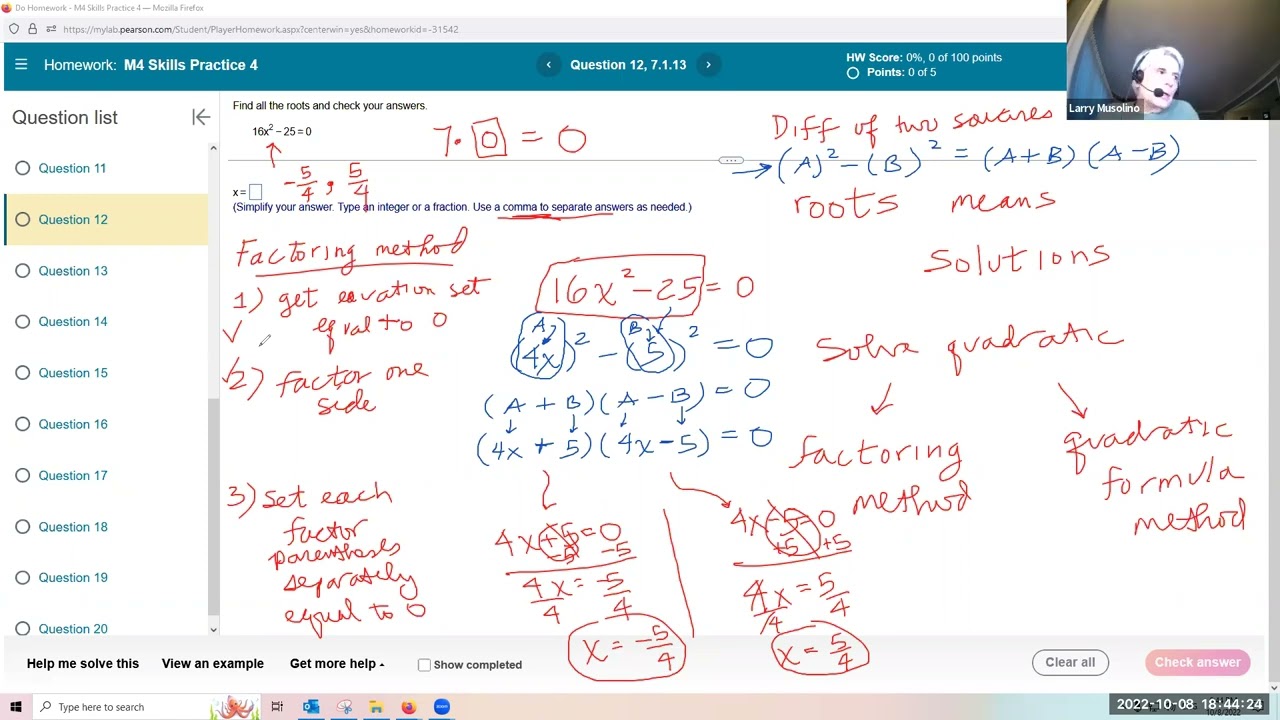 Do Homework - M4 Skills Practice 4 — Mozilla Firefox
https://mylab.pearson.com/Student/PlayerHomework.aspx?centerwin=yes&homeworkid=-31542
Homework: M4 Skills Practice 4
Question 12, 7.1.13
HW Score: 0%, 0 of 100 points
Points: 0 of 5
Larry Musolino
Question list
Question 11
Question 12
Question 13
Question 14
Question 15
Question 16
Question 17
Question 18
Question 19
Question 20
Find all the roots and check your answers.
16x² − 25 = 0
7 · 0 = 0
Diff of two squares
(A)² − (B)² = (A+B)(A−B)
-5/4 , 5/4
x =
(Simplify your answer. Type an integer or a fraction. Use a comma to separate answers as needed.)
roots means
solutions
Factoring method
1) get equation set
equal to 0
2) factor one
side
3) set each
factor
parentheses
separately
equal to 0
16x² − 25 = 0
A B
(4x)² − (5)² = 0
(A + B)(A − B) = 0
(4x + 5)(4x − 5) = 0
4x+5=0
-5 -5
4x = -5
4 4
x = -5/4
4x-5=0
+5 +5
4x = 5
4 4
x = 5/4
Solve quadratic
factoring
method
quadratic
formula
method
Help me solve this
View an example
Get more help
Show completed
Clear all
Check answer
Type here to search
2022-10-08 18:44:24